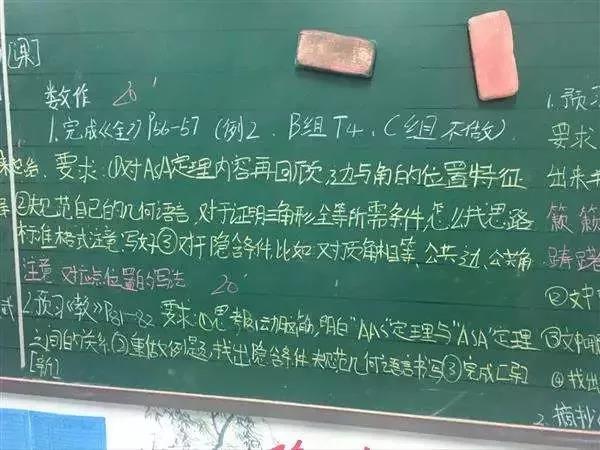 [课]
数作 20'
1.完成《全》P56-57 (例2、B组T4、C组不做)
要求:①对ASA定理内容再回顾,边与角的位置特征
②规范自己的几何语言,对于证明三角形全等所需条件,怎么找思路
标准格式注意写好③对于隐含条件比如对顶角相等、公共边、公共角
注意 对应点位置的写法 20'
2.预习《数》P81-82 要求:①思考 动脑筋,明白"AAS"定理与"ASA"定理
之间的关系②重做例题,找出隐含条件 规范几何语言书写③完成汇
[新]
1.预习
要求
出来
簌簌
踌躇
②文中
③文中
④找出
2.摘抄